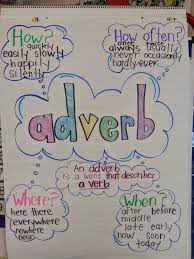 How?
quickly
easily slowly
happily
silently
How often?
always usually
never occasionally
hardly ever
adverb
An adverb
is a word that describes
a verb
Where?
here there
everywhere
nowhere
near
When?
after before
middle
late early
now soon
today